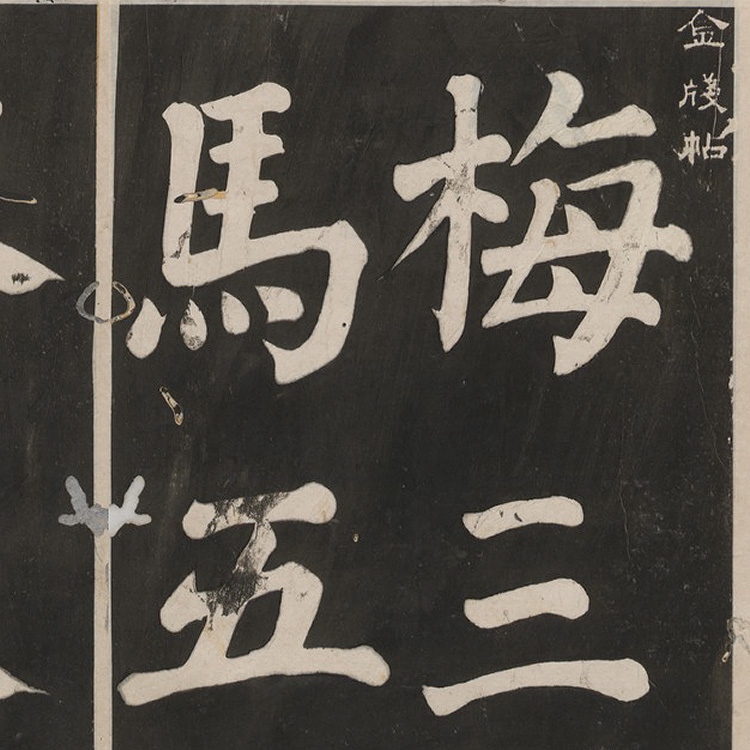 金牋帖
梅三
馬五